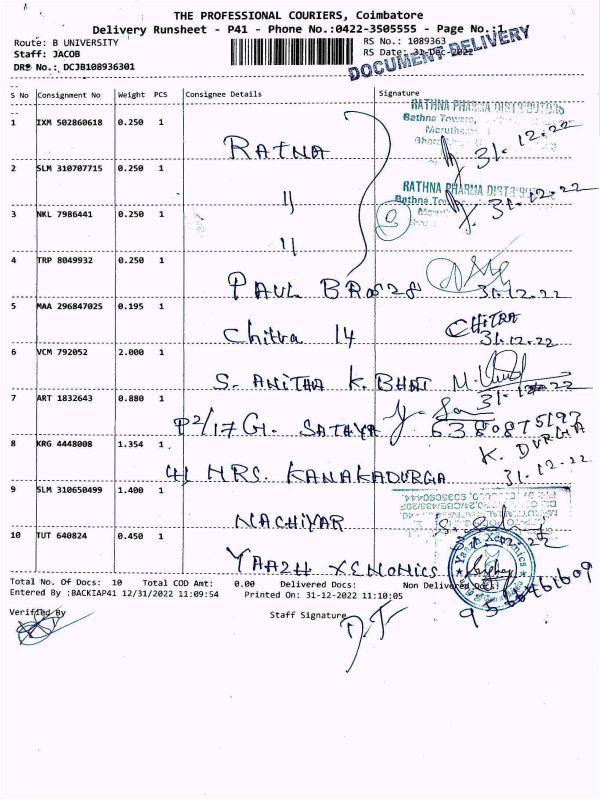 THE PROFESSIONAL COURIERS, Coimbatore
Delivery Runsheet - P41 - Phone No.:0422-3505555 - Page No.:1
Route: B UNIVERSITY RS No.: 1089363
Staff: JACOB RS Date: 31-Dec-2022
DRS No.: DCJB108936301
DOCUMENT DELIVERY
S No Consignment No Weight PCS Consignee Details Signature
1 IXM 502860618 0.250 1
RATHNA PHARMA DISTRIBUTORS
Rathna Towers,
RATNA 31.12.22
2 SLM 310707715 0.250 1
RATHNA PHARMA DISTRIBUTORS
" 31.12.22
3 NKL 7986441 0.250 1
"
4 TRP 8049932 0.250 1
PAUL BROS 31.12.22
5 MAA 296847025 0.195 1
Chitra 14 CHITRA
31.12.22
6 VCM 792052 2.000 1
S. ANITHA K. BHAT
7 ART 1832643 0.880 1
P2/17 G. SATHYA
8 KRG 4448008 1.354 1 K. DURGA
MRS. KANAKADURGA 31.12.22
9 SLM 310650499 1.400 1
NACHIYAR
10 TUT 640824 0.450 1
YAAZH XENOMICS Yaazh Xenomics
Total No. Of Docs: 10 Total COD Amt: 0.00 Delivered Docs: Non Delivered Docs:
Entered By :BACKIAP41 12/31/2022 11:09:54 Printed On: 31-12-2022 11:10:05
Verified By Staff Signature